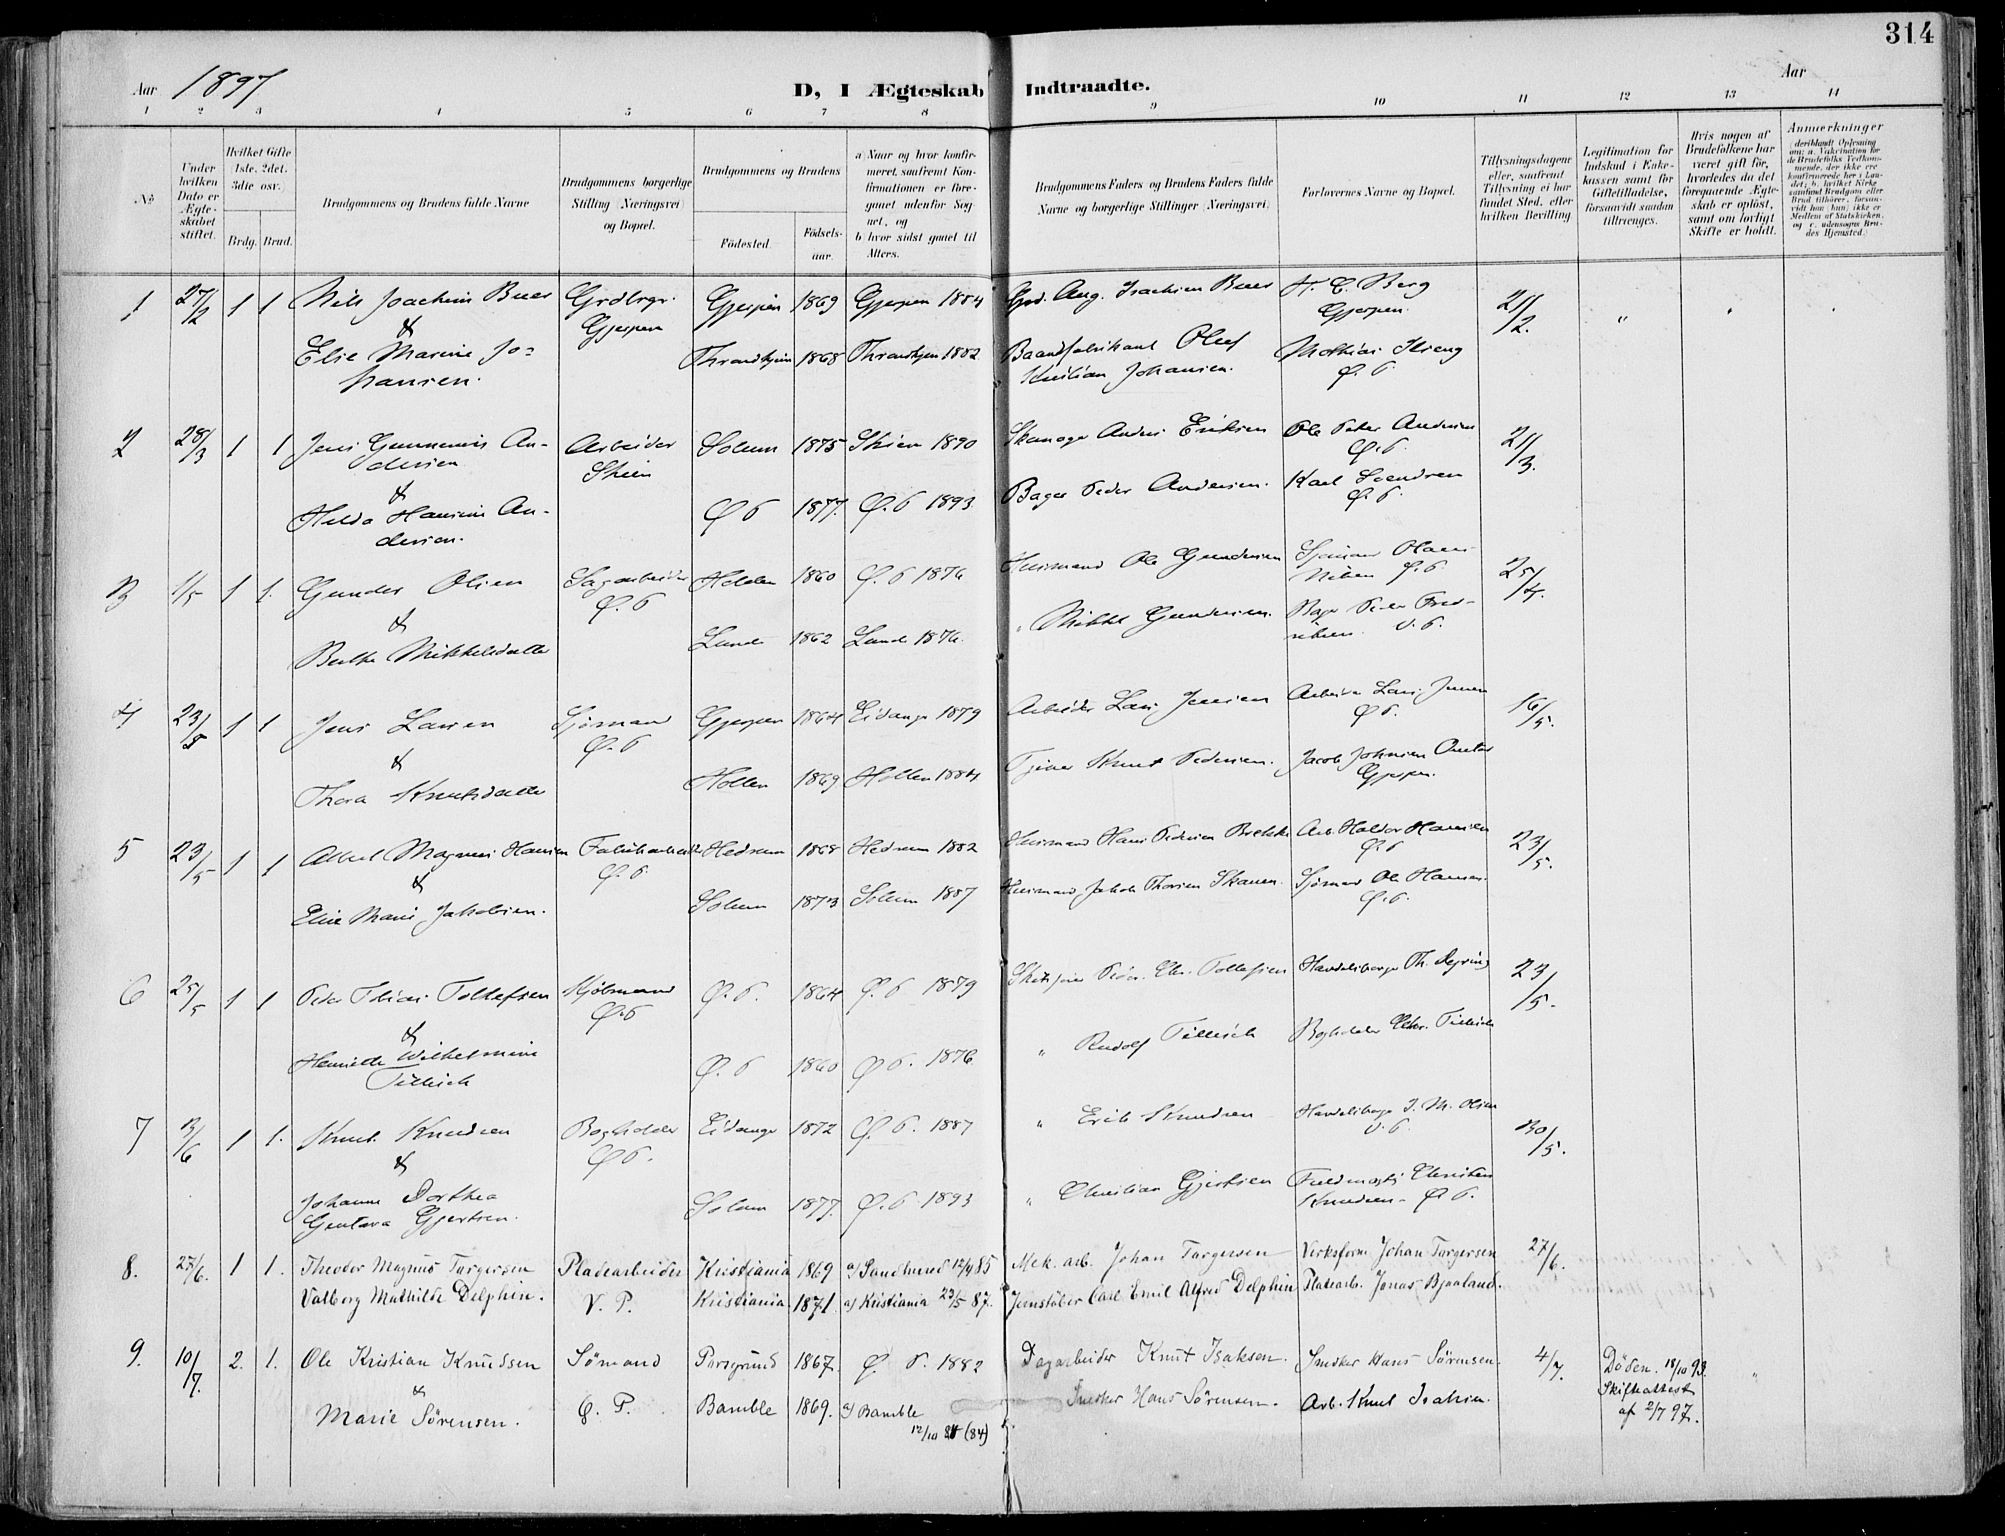 314
Aar 1897
D, I Ægteskab Indtraadte.
Aar
1 2 3 4 5 6 7 8 9 10 11 12 13 14
No
Under hvilken Dato er Ægteskabet stiftet.
Hvilket Gifte 1ste, 2det, 3die osv.
Brdg. Brud.
Brudgommens og Brudens fulde Navne
Brudgommens borgerlige Stilling (Næringsvei) og Bopæl.
Brudgommens og Brudens
Födested.
Födselsaar.
a) Naar og hvor konfirmeret, saafremt Konfirmationen er foregaaet udenfor Sognet, og
b) hvor sidst gaaet til Alters.
Brudgommens Faders og Brudens Faders fulde Navne og borgerlige Stillinger (Næringsvei)
Forlovernes Navne og Bopæl.
Tillysningsdagene eller, saafremt Tillysning ei har fundet Sted, efter hvilken Bevilling.
Legitimation for Indskud i Enkekassen samt for Giftetilladelse, forsaavidt saadan tiltrænges.
Hvis nogen af Brudefolkene har været gift för, hvorledes da det foregaaende Ægteskab er oplöst, samt om lovligt Skifte er holdt.
Anmærkninger
1 27/2 1 1 Nils Joachim Buer Grdbrgr. Gjerpen 1869 Gjerpen 1884 Grd. Aug. Isachsen Buer H. C. Berg 21/2. " " "
& Gjerpen Gjerpen.
Elise Marine Jo- Throndhjem 1865 Throndhjem 1882 Baandfabrikant Oluf Mathias
hansen. Johansen. Ø. P.
2 28/3 1 1 Jens Gunnenius An- Arbeider Solum 1875 Skien 1890 Anders Eriksen Ole Peter Andersen 21/3.
dersen Skien Ø. P.
& Bager Peder Andersen. Karl
Hilda Hansine An- Ø P 1877. Ø. P 1893 Ø. P.
dersen.
3 1/5 1 1. Gunder Olsen Sagarbeider Holden 1860 Ø. P 1876 Husmand Ole Gundersen 25/4.
& Ø. P Ø. P.
Berthe Mikkelsdatter Lunde 1862 Lunde 1876. " Mikkel Gundersen. Bager Peder
Ø. P.
4 23/5 1 1 Jens Larsen Sjømand Gjerpen 1864 Eidanger 1879 Arbeider Lars Jensen Arbeider Lars Jensen 16/5.
& Ø. P Ø P.
Thora Knutsdatter Hollen 1869 Hollen 1884 Knut Pedersen. Jacob Johnsen
Gjerpen.
5 23/5 1 1 Albert Magnus Hansen Fabrikarbeider Hedrum 1868 Hedrum 1882 Husmand Hans Pedersen Brekke Arb. Haldor Hansen 23/5.
& Ø. P. Ø. P
Elise Marie Jakobsen. Solum 1873 Solum 1887 Husmand Jakob Thorsen Skauen. Sjømand Ole Hansen.
Ø. P.
6 25/5 1 1 Peder Tobias Tollefsen Kjøbmand Ø. P. 1864 Ø. P 1879 Peder Chr. Tollefsen Handelsborger Th. 23/5.
& Ø. P
Henriette Wilhelmine Ø. P 1860 Ø P. 1876 " Rudolf Tillisch Boghdeler Chr. Tillisch
Tillisch
7 12/6 1 1. Knut Knudsen Boghdeler Eidanger 1872 Ø. P. 1887 " Erik Knudsen Handelsborger J. M. Olsen 30/5.
& Ø P. Ø. P.
Johanne Dorthea Solum 1877. Ø. P 1893 " Christian Gjertsen Fuldmægtig Christen
Gustava Gjertsen. Knudsen Ø P.
8. 27/6. 1 1. Theodor Magnus Torgersen Pladearbeider Kristiania 1869 a) Sandherred 12/4 85 Mek. arb. Johan Torgersen Verksform. Johan Torgersen 27/6.
Valborg Mathilde Delphin. V. P. Kristiania. 1871. a) Kristiania 23/5 87. Jernstøber Carl Emil Alfred Delphin Platearb. Jonas Bjaaland.
9. 10/7. 2. 1. Ole Kristian Knudsen Sømand Porsgrund 1867. Ø. P. 1882 Dagarbeider Knut Isaksen. Snedker Hans Sørensen. 4/7. Døden. 18/10 93. "
& Skifteattest
Marie Sørensen. Ø. P. Bamble 1869. a) Bamble Snedker Hans Sørensen. Arb. Knut Isaksen. af 2/7 97.
12/10 (84)